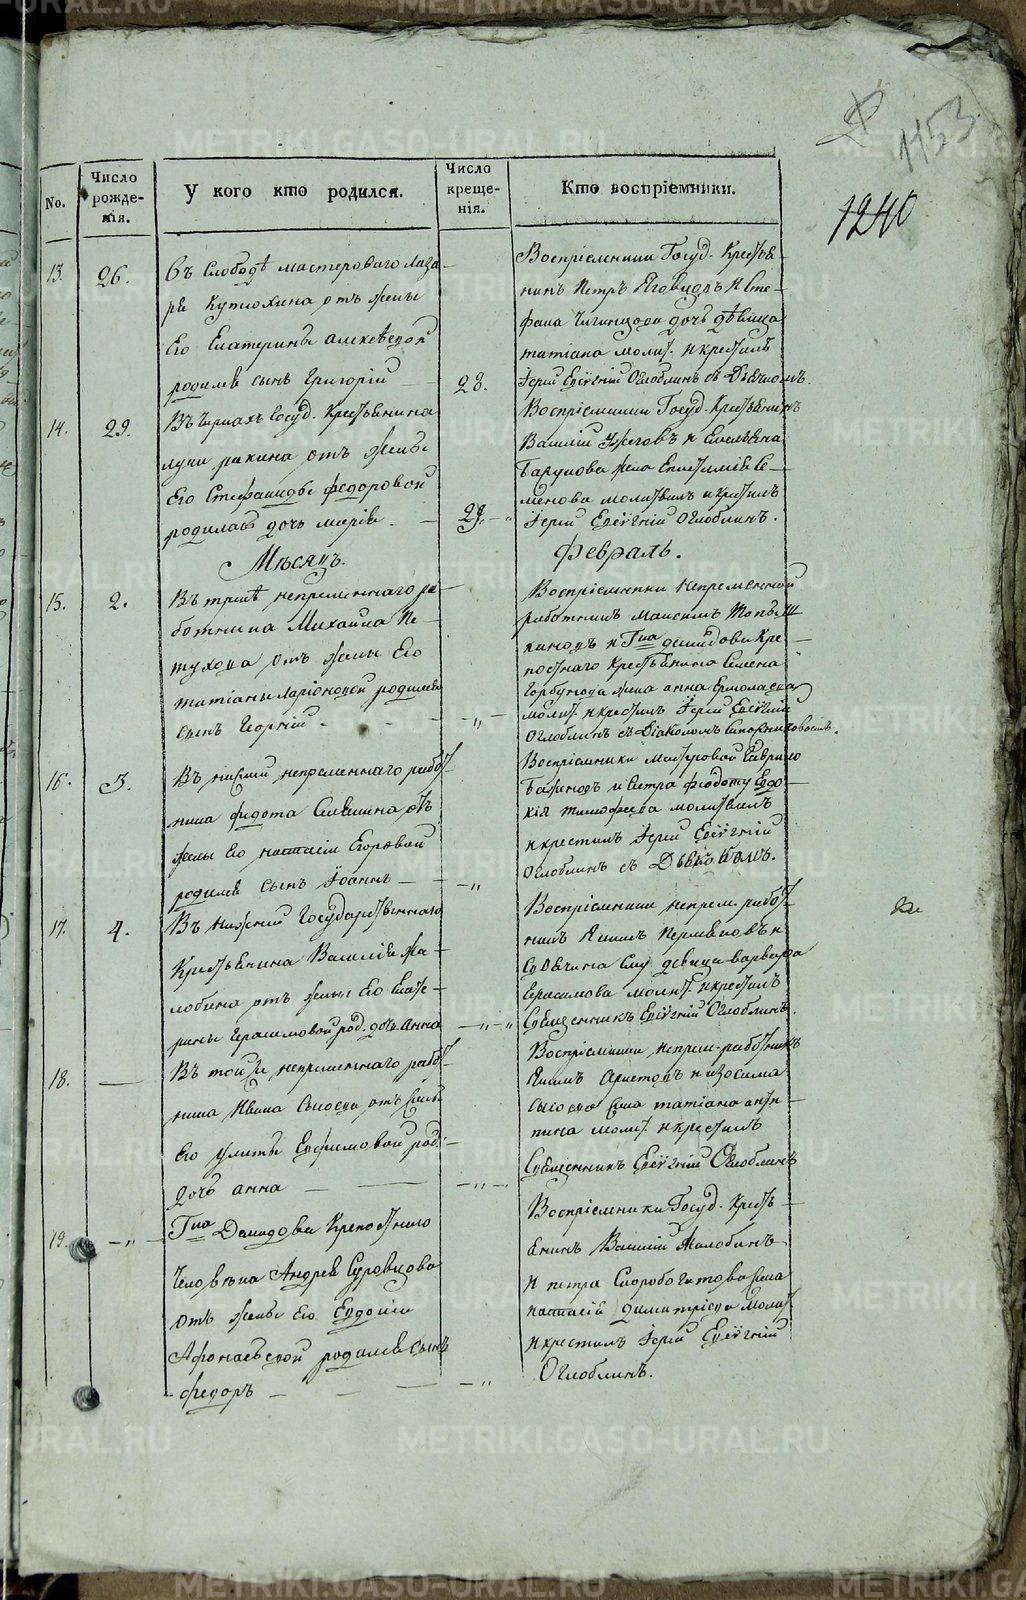 1153
1240
No.
Число рожде-нія.
У кого кто родился.
Число креще-нія.
Кто воспріемники.
13.
26.
Въ Слободѣ мастероваго Лаза-
ря Кутюхина отъ жены
Его Екатерины алексѣевой
родился сынъ Григорій
28.
Воспріемники Госуд. Крестья-
нинъ Петръ и Сте-
фана дочь дѣвица
татіана молит. и крестилъ
Іерей Евгеній Оглоблинъ съ Дьячкомъ.
14.
29.
Въ Черпахъ Госуд. Крестьянина
луки ракина отъ жены
Его Стефаниды федоровой
родилась дочь марія
29.
Воспріемники Госуд. Крестьянинъ
Василій Ужеговъ и Емельяна
жена Епистимія Се-
менова молитвилъ и крестилъ
Іерей Евгеній Оглоблинъ.
Мѣсяцъ.
Февраль.
15.
2.
Въ непременнаго ра-
ботника Михаила Пе-
тухова отъ жены Его
татіаны Ларіоновой родился
сынъ Георгій
-„-
Воспріемники Непременной
работникъ Максимъ
и Гна демидова Кре-
постнаго Крестьянина Семена
Горбунова жена анна Ермолаева
молит. и крестилъ Іерей Евгеній
Оглоблинъ съ Діакономъ
16.
3.
Въ непременнаго работ-
ника федота отъ
жены Его настасіи Егоровой
родился сынъ Іоаннъ
-„
Воспріемники Мастеровой Гаврило
Баженовъ и Евдо-
кія тимофеева молитвилъ
и крестилъ Іерей Евгеній
Оглоблинъ съ
17.
4.
Въ нижней Государственнаго
Крестьянина Василія Жа-
лобина отъ жены Его Екате-
рины Герасимовой род. дочь Анна
-„-„
Воспріемники непрем. работ-
никъ Якимъ и
дѣвица варвара
Герасимова молит. и крестилъ
Священникъ Евгеній Оглоблинъ.
18.
Въ той же непременнаго работ-
ника Ивана Сысоева отъ жены
Его улиты Ефимовой род.
дочь анна
-„-
Воспріемники непрем. работникъ
Якимъ Аристовъ и изосима
Сысоева жена татіана анти-
пина молит. и крестилъ
Священникъ Евгеній Оглоблинъ
19.
-„-
Гна Демидова Крепостнаго
Человѣка Андрея Суровцова
отъ жены Его Евдокіи
Афонасьевой родился сынъ
федоръ
-„
Воспріемники Госуд. Кресть-
янинъ Василій Жалобинъ
и петра Скоробогатова жена
настасія димитріева молит.
и крестилъ Іерей Евгеній
Оглоблинъ.
METRIKI.GASO-URAL.RU